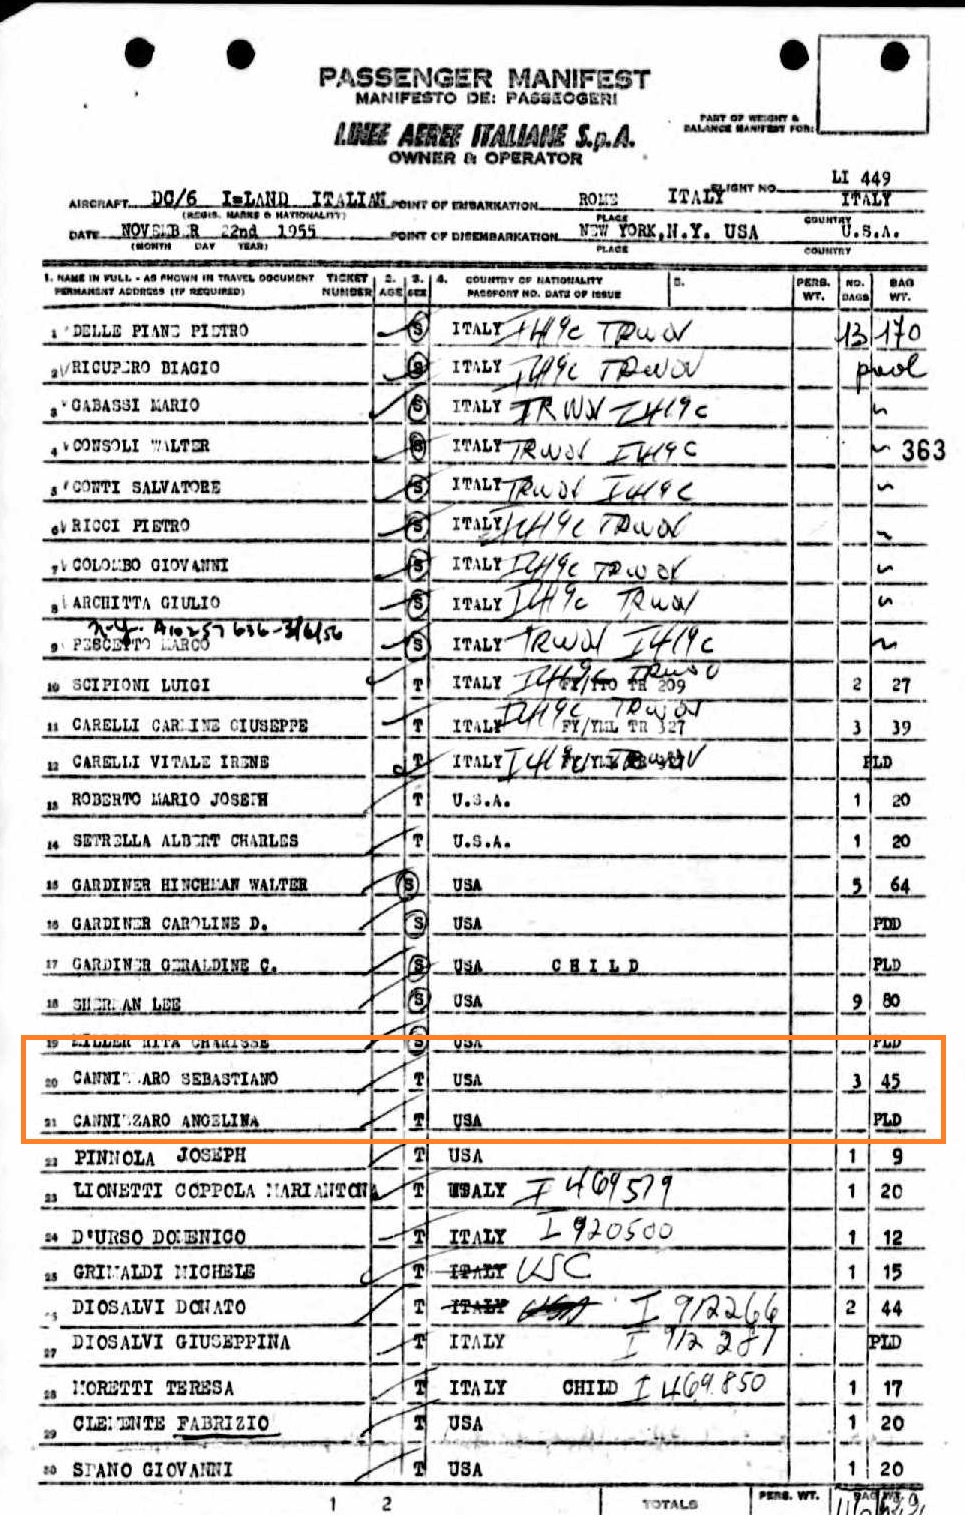 PASSENGER MANIFEST
MANIFESTO DE: PASSEOGERI
LINEE AEREE ITALIANE S.p.A.
OWNER & OPERATOR
PART OF WEIGHT &
BALANCE MANIFEST FOR:
FLIGHT NO. LI 449
AIRCRAFT DC/6 I=LAND ITALIAN POINT OF EMBARKATION ROME ITALY ITALY
(REGIS. MARKS & NATIONALITY) PLACE COUNTRY
DATE NOVEMBER 22nd 1955 POINT OF DISEMBARKATION NEW YORK,N.Y. USA U.S.A.
(MONTH DAY YEAR) PLACE COUNTRY
1. NAME IN FULL - AS SHOWN IN TRAVEL DOCUMENT TICKET 2. 3. 4. COUNTRY OF NATIONALITY 5. PERS. NO. BAG
PERMANENT ADDRESS (IF REQUIRED) NUMBER AGE SEX PASSPORT NO. DATE OF ISSUE WT. BAGS WT.
1 DELLE PIANE PIETRO S ITALY I419c TRWOV 13 170
2 RICUPERO BIAGIO S ITALY I419c TRWOV pool
3 GABASSI MARIO S ITALY TRWOV I419c
4 CONSOLI WALTER S ITALY TRWOV I419c 363
5 CONTI SALVATORE S ITALY TRWOV I419c
6 RICCI PIETRO S ITALY I419c TRWOV
7 COLOMBO GIOVANNI S ITALY I419c TRWOV
8 ARCHITTA GIULIO S ITALY I419c TRWOV
N.Y. A10257636-3/6/56
9 PESCETTO MARCO S ITALY TRWOV I419c
10 SCIPIONI LUIGI T ITALY I419c TRWOV TR 209 2 27
11 CARELLI CARLINE GIUSEPPE T ITALY I419c TRWOV FY/YEL TR 327 3 39
12 CARELLI VITALE IRENE T ITALY I419c TRWOV PLD
13 ROBERTO MARIO JOSEPH T U.S.A. 1 20
14 SETRELLA ALBERT CHARLES T U.S.A. 1 20
15 GARDINER HINCHMAN WALTER S USA 5 64
16 GARDINER CAROLINE D. S USA PDD
17 GARDINER GERALDINE C. S USA CHILD PLD
18 SHERMAN LEE S USA 9 80
19 MILLER RITA CHARISSE S USA PLD
20 CANNIZZARO SEBASTIANO T USA 3 45
21 CANNIZZARO ANGELINA T USA PLD
22 PINNOLA JOSEPH T USA 1 9
23 LIONETTI COPPOLA MARIANTONA T ITALY I 469579 1 20
24 D'URSO DOMENICO T ITALY I 920500 1 12
25 GRIMALDI MICHELE T ITALY USC 1 15
DIOSALVI DONATO T ITALY USA I 912266 2 44
27 DIOSALVI GIUSEPPINA T ITALY I 912 287 PLD
28 MORETTI TERESA T ITALY CHILD I 469.850 1 17
29 CLEMENTE FABRIZIO T USA 1 20
30 SPANO GIOVANNI T USA 1 20
1 2 TOTALS PERS. WT. BAG WT.